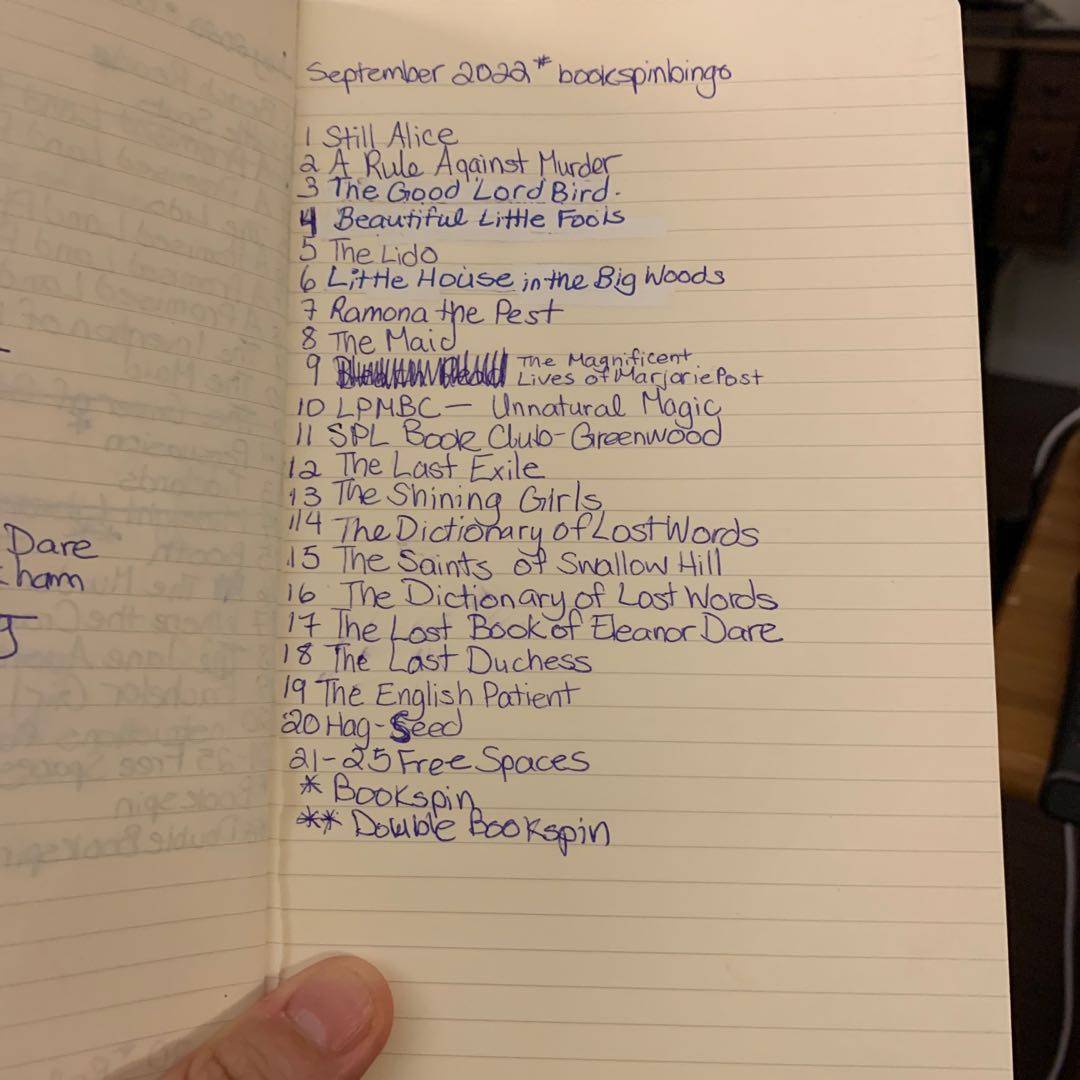 September 2022* bookspinbingo
1 Still Alice
2 A Rule Against Murder
3 The Good Lord Bird.
4 Beautiful Little Fools
5 The Lido
6 Little House in the Big Woods
7 Ramona the Pest
8 The Maid
9 The Magnificent
Lives of Marjorie Post
10 LPMBC — Unnatural Magic
11 SPL Book Club-Greenwood
12 The Last Exile
13 The Shining Girls
14 The Dictionary of Lost Words
15 The Saints of Swallow Hill
16 The Dictionary of Lost Words
17 The Lost Book of Eleanor Dare
18 The Last Duchess
19 The English Patient
20 Hag-Seed
21-25 Free Spaces
* Bookspin
** Double Bookspin
Dare